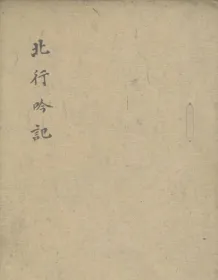 北行吟記